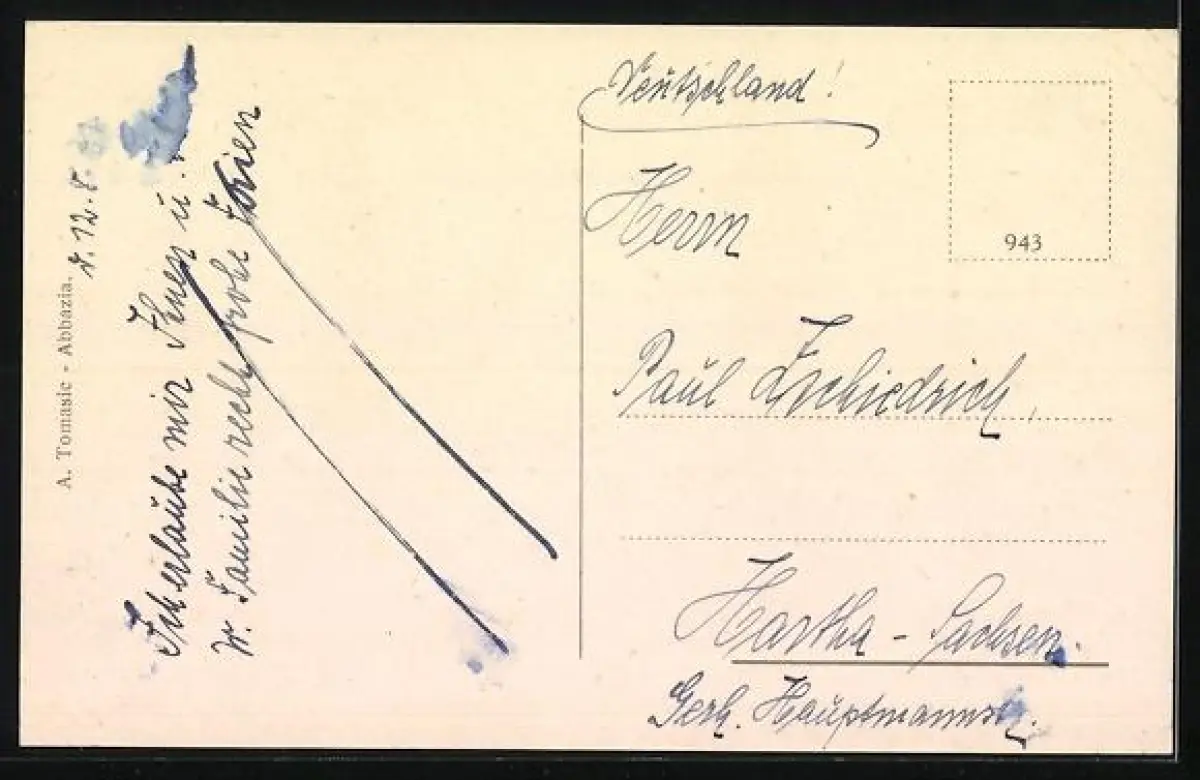 A. Tomasic - Abbazia.
Ich erlaube mir Ihnen u.
W. Familie recht frohe
Deutschland!
943
Herrn
Paul Zschiedrich,
Hartha - Sachsen.
Gerh. Hauptmannstr.